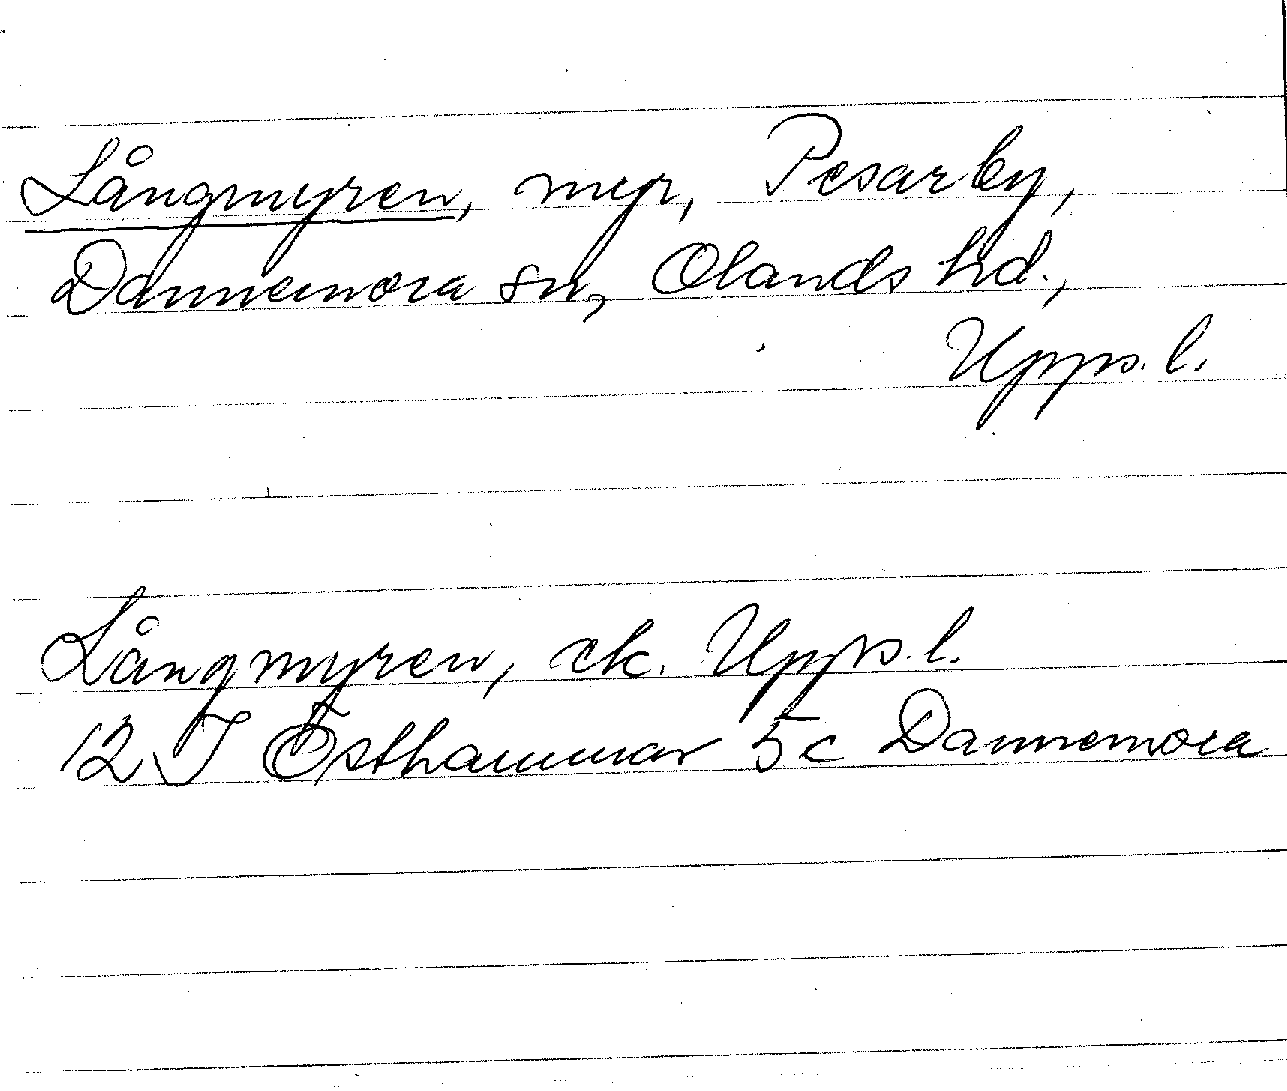 Långmyren, myr, Pesarby,
Dannemora sn, Olands hd.,
Upps. l.
Långmyren, ek. Upps. l.
12 I Östhammar 5c Dannemora